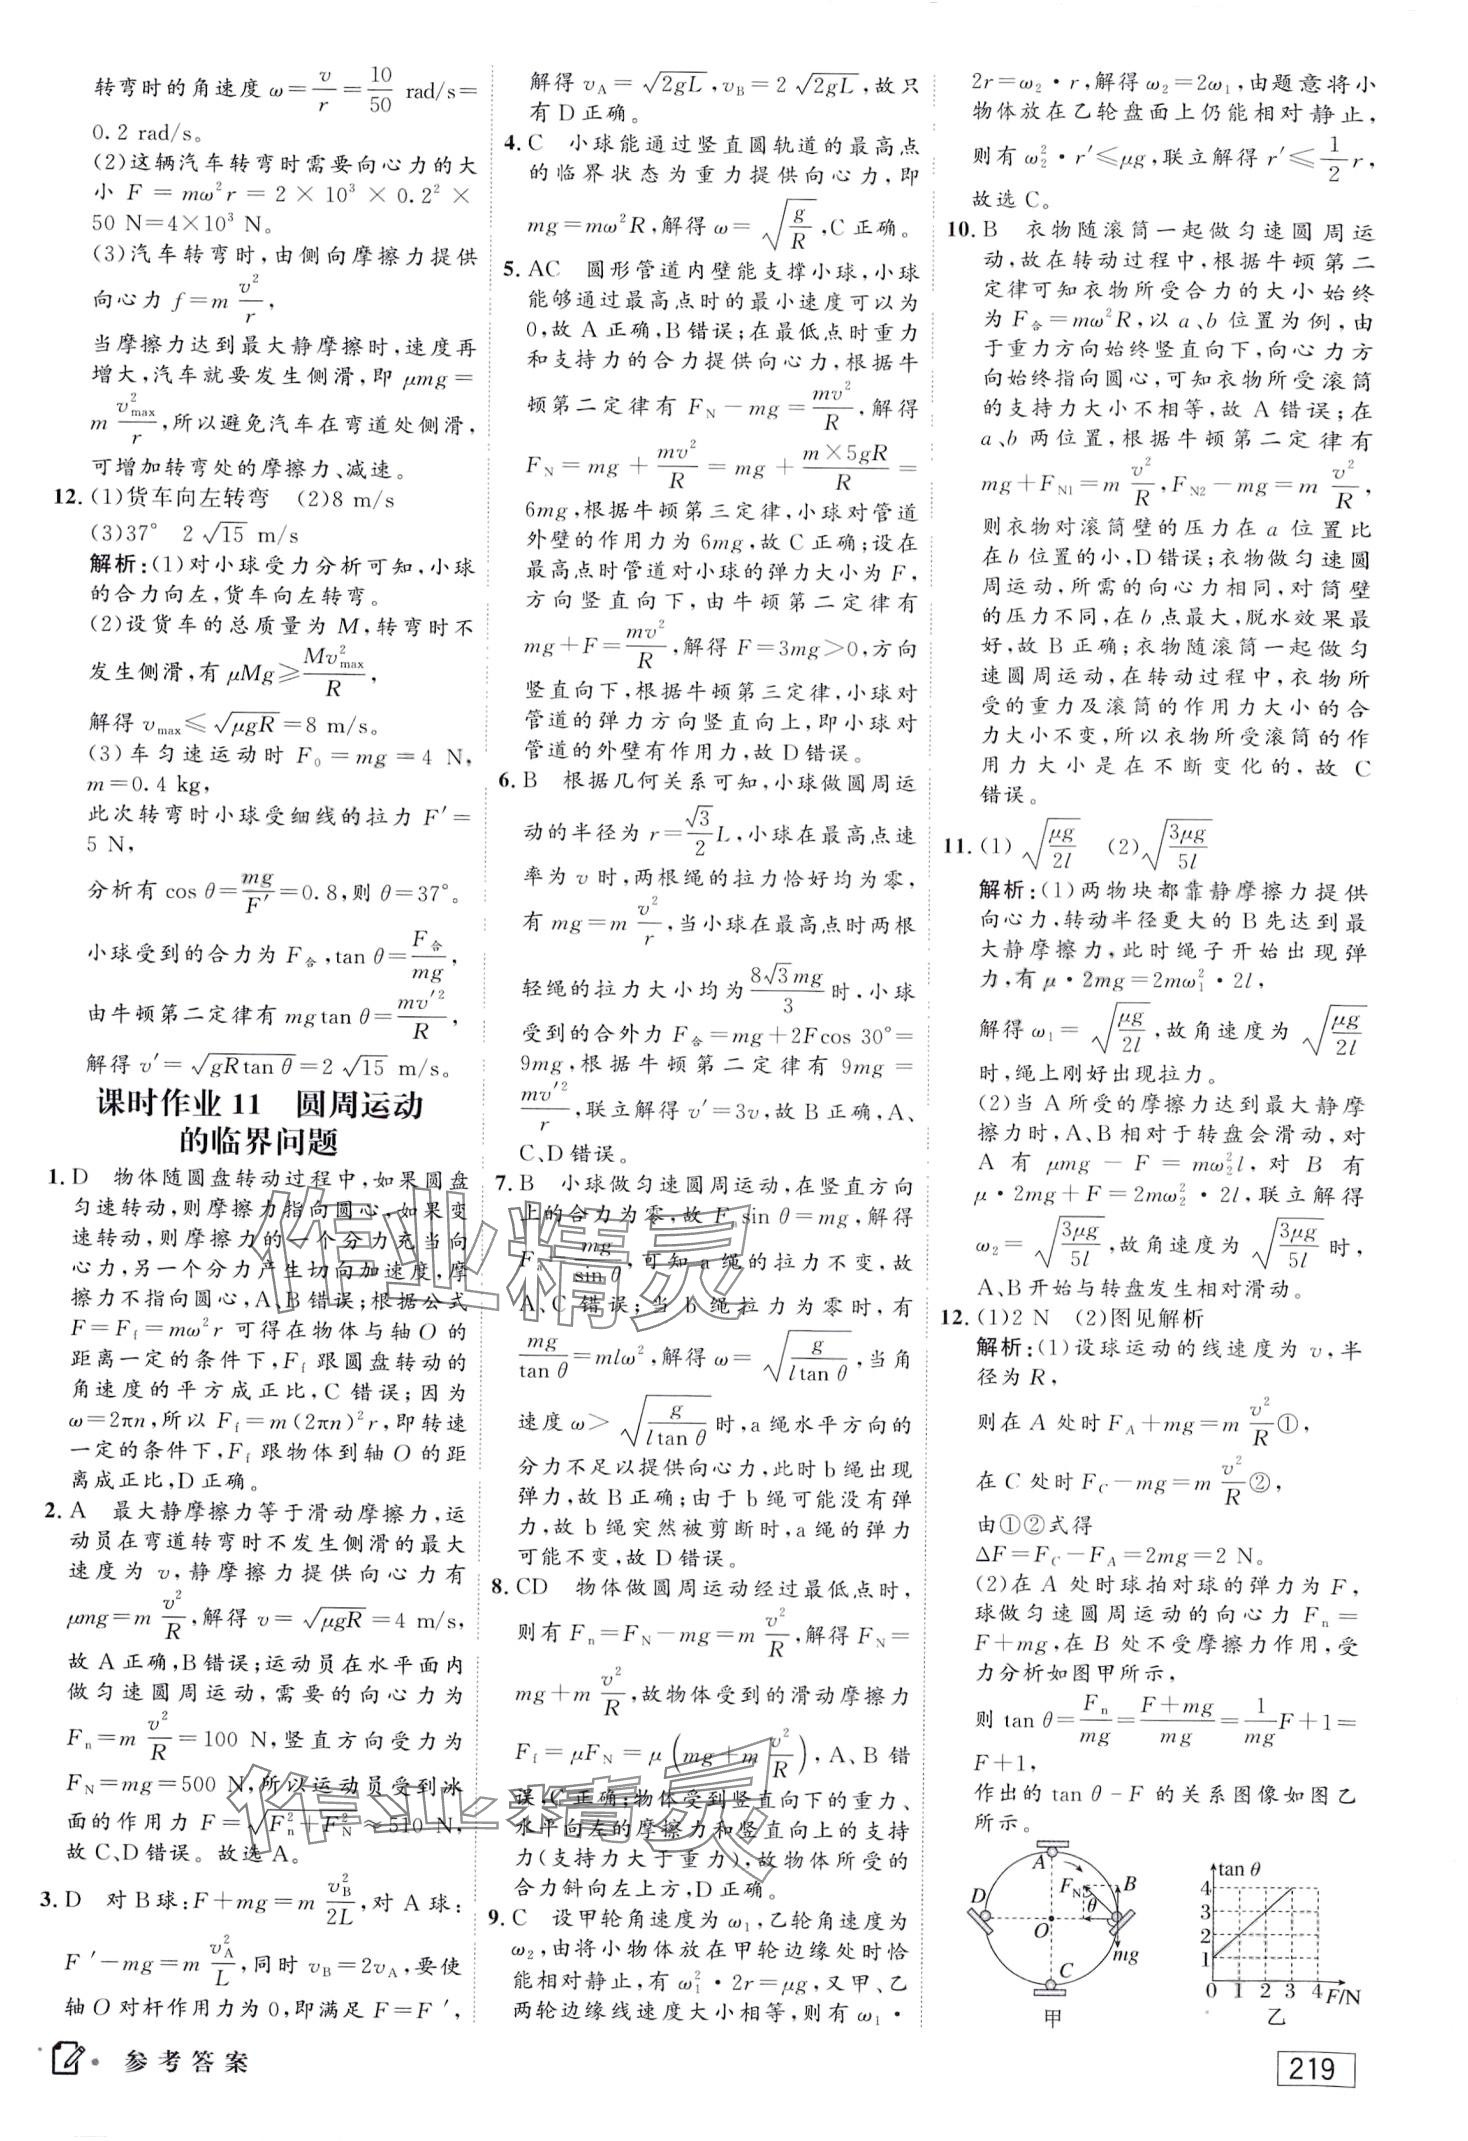 转弯时的角速度 ω=v/r=10/50 rad/s=
0.2 rad/s。
(2)这辆汽车转弯时需要向心力的大
小 F = mω²r = 2 × 10³ × 0.2² ×
50 N=4×10³ N。
(3)汽车转弯时,由侧向摩擦力提供
向心力 f=m v²/r,
当摩擦力达到最大静摩擦时,速度再
增大,汽车就要发生侧滑,即 μmg=
m v²max/r,所以避免汽车在弯道处侧滑,
可增加转弯处的摩擦力、减速。
12. (1)货车向左转弯 (2)8 m/s
(3)37° 2√15 m/s
解析:(1)对小球受力分析可知,小球
的合力向左,货车向左转弯。
(2)设货车的总质量为 M,转弯时不
发生侧滑,有 μMg≥Mv²max/R,
解得 vmax≤√(μgR)=8 m/s。
(3)车匀速运动时 F₀=mg=4 N,
m=0.4 kg,
此次转弯时小球受细线的拉力 F′=
5 N,
分析有 cos θ=mg/F′=0.8,则 θ=37°。
小球受到的合力为 F合,tan θ=F合/mg,
由牛顿第二定律有 mgtan θ=mv′²/R,
解得 v′=√(gRtan θ)=2√15 m/s。
课时作业 11 圆周运动
的临界问题
1. D 物体随圆盘转动过程中,如果圆盘
匀速转动,则摩擦力指向圆心,如果变
速转动,则摩擦力的一个分力充当向
心力,另一个分力产生切向加速度,摩
擦力不指向圆心,A、B错误;根据公式
F=Ff=mω²r 可得在物体与轴 O 的
距离一定的条件下,Ff 跟圆盘转动的
角速度的平方成正比,C 错误;因为
ω=2πn,所以 Ff=m(2πn)²r,即转速
一定的条件下,Ff 跟物体到轴 O 的距
离成正比,D正确。
2. A 最大静摩擦力等于滑动摩擦力,运
动员在弯道转弯时不发生侧滑的最大
速度为 v,静摩擦力提供向心力有
μmg=m v²/R,解得 v=√(μgR)=4 m/s,
故 A 正确,B 错误;运动员在水平面内
做匀速圆周运动,需要的向心力为
Fn=m v²/R=100 N,竖直方向受力为
FN=mg=500 N,所以运动员受到冰
面的作用力 F=√(F²n+F²N)≈510 N,
故 C、D错误。故选 A。
3. D 对 B 球:F+mg=m v²B/2L,对 A 球:
F′-mg=m v²A/L,同时 vB=2vA,要使
轴 O 对杆作用力为 0,即满足 F=F′,
解得 vA=√(2gL),vB=2√(2gL),故只
有 D 正确。
4. C 小球能通过竖直圆轨道的最高点
的临界状态为重力提供向心力,即
mg=mω²R,解得 ω=√(g/R),C 正确。
5. AC 圆形管道内壁能支撑小球,小球
能够通过最高点时的最小速度可以为
0,故 A 正确,B 错误;在最低点时重力
和支持力的合力提供向心力,根据牛
顿第二定律有 FN-mg=mv²/R,解得
FN = mg + mv²/R = mg + m×5gR/R =
6mg,根据牛顿第三定律,小球对管道
外壁的作用力为 6mg,故 C 正确;设在
最高点时管道对小球的弹力大小为 F,
方向竖直向下,由牛顿第二定律有
mg+F=mv²/R,解得 F=3mg>0,方向
竖直向下,根据牛顿第三定律,小球对
管道的弹力方向竖直向上,即小球对
管道的外壁有作用力,故 D 错误。
6. B 根据几何关系可知,小球做圆周运
动的半径为 r=√3/2 L,小球在最高点速
率为 v 时,两根绳的拉力恰好均为零,
有 mg=m v²/r,当小球在最高点时两根
轻绳的拉力大小均为 8√3mg/3 时,小球
受到的合外力 F合=mg+2Fcos 30°=
9mg,根据牛顿第二定律有 9mg=
mv′²/r,联立解得 v′=3v,故 B 正确,A、
C、D错误。
7. B 小球做匀速圆周运动,在竖直方向
上的合力为零,故 F sin θ=mg,解得
F=mg/sin θ,可知 a 绳的拉力不变,故
A、C 错误;当 b 绳拉力为零时,有
mg/tan θ=mlω²,解得 ω=√(g/(ltan θ)),当角
速度 ω>√(g/(ltan θ))时,a 绳水平方向的
分力不足以提供向心力,此时 b 绳出现
弹力,故 B 正确;由于 b 绳可能没有弹
力,故 b 绳突然被剪断时,a 绳的弹力
可能不变,故 D 错误。
8. CD 物体做圆周运动经过最低点时,
则有 Fn=FN-mg=m v²/R,解得 FN=
mg+m v²/R,故物体受到的滑动摩擦力
Ff=μFN=μ(mg+m v²/R),A、B 错
误,C正确;物体受到竖直向下的重力、
水平向左的摩擦力和竖直向上的支持
力(支持力大于重力),故物体所受的
合力斜向左上方,D 正确。
9. C 设甲轮角速度为 ω₁,乙轮角速度为
ω₂,由将小物体放在甲轮边缘处时恰
能相对静止,有 ω₁²·2r=μg,又甲、乙
两轮边缘线速度大小相等,则有 ω₁·
2r=ω₂·r,解得 ω₂=2ω₁,由题意将小
物体放在乙轮盘面上仍能相对静止,
则有 ω₂²·r′≤μg,联立解得 r′≤1/2 r,
故选 C。
10. B 衣物随滚筒一起做匀速圆周运
动,故在转动过程中,根据牛顿第二
定律可知衣物所受合力的大小始终
为 F合=mω²R,以 a、b 位置为例,由
于重力方向始终竖直向下,向心力方
向始终指向圆心,可知衣物所受滚筒
的支持力大小不相等,故 A 错误;在
a、b 两位置,根据牛顿第二定律有
mg+FN1=m v²/R,FN2-mg=m v²/R,
则衣物对滚筒壁的压力在 a 位置比
在 b 位置的小,D 错误;衣物做匀速圆
周运动,所需的向心力相同,对筒壁
的压力不同,在 b 点最大,脱水效果最
好,故 B 正确;衣物随滚筒一起做匀
速圆周运动,在转动过程中,衣物所
受的重力及滚筒的作用力大小的合
力大小不变,所以衣物所受滚筒的作
用力大小是在不断变化的,故 C
错误。
11. (1)√(μg/2l) (2)√(3μg/5l)
解析:(1)两物块都靠静摩擦力提供
向心力,转动半径更大的 B 先达到最
大静摩擦力,此时绳子开始出现弹
力,有 μ·2mg=2mω₁²·2l,
解得 ω₁=√(μg/2l),故角速度为 √(μg/2l)
时,绳上刚好出现拉力。
(2)当 A 所受的摩擦力达到最大静摩
擦力时,A、B 相对于转盘会滑动,对
A 有 μmg-F=mω₂²l,对 B 有
μ·2mg+F=2mω₂²·2l,联立解得
ω₂=√(3μg/5l),故角速度为 √(3μg/5l)时,
A、B开始与转盘发生相对滑动。
12. (1)2 N (2)图见解析
解析:(1)设球运动的线速度为 v,半
径为 R,
则在 A 处时 FA+mg=m v²/R①,
在 C 处时 FC-mg=m v²/R②,
由①②式得
ΔF=FC-FA=2mg=2 N。
(2)在 A 处时球拍对球的弹力为 F,
球做匀速圆周运动的向心力 Fn=
F+mg,在 B 处不受摩擦力作用,受
力分析如图甲所示,
则 tan θ=Fn/mg=(F+mg)/mg=1/mg F+1=
F+1,
作出的 tan θ-F 的关系图像如图乙
所示。
A
D
FN
B
θ
O
mg
C
甲
tan θ
4
3
2
1
0 1 2 3 4 F/N
乙
作业精灵
作业精灵
参考答案
219